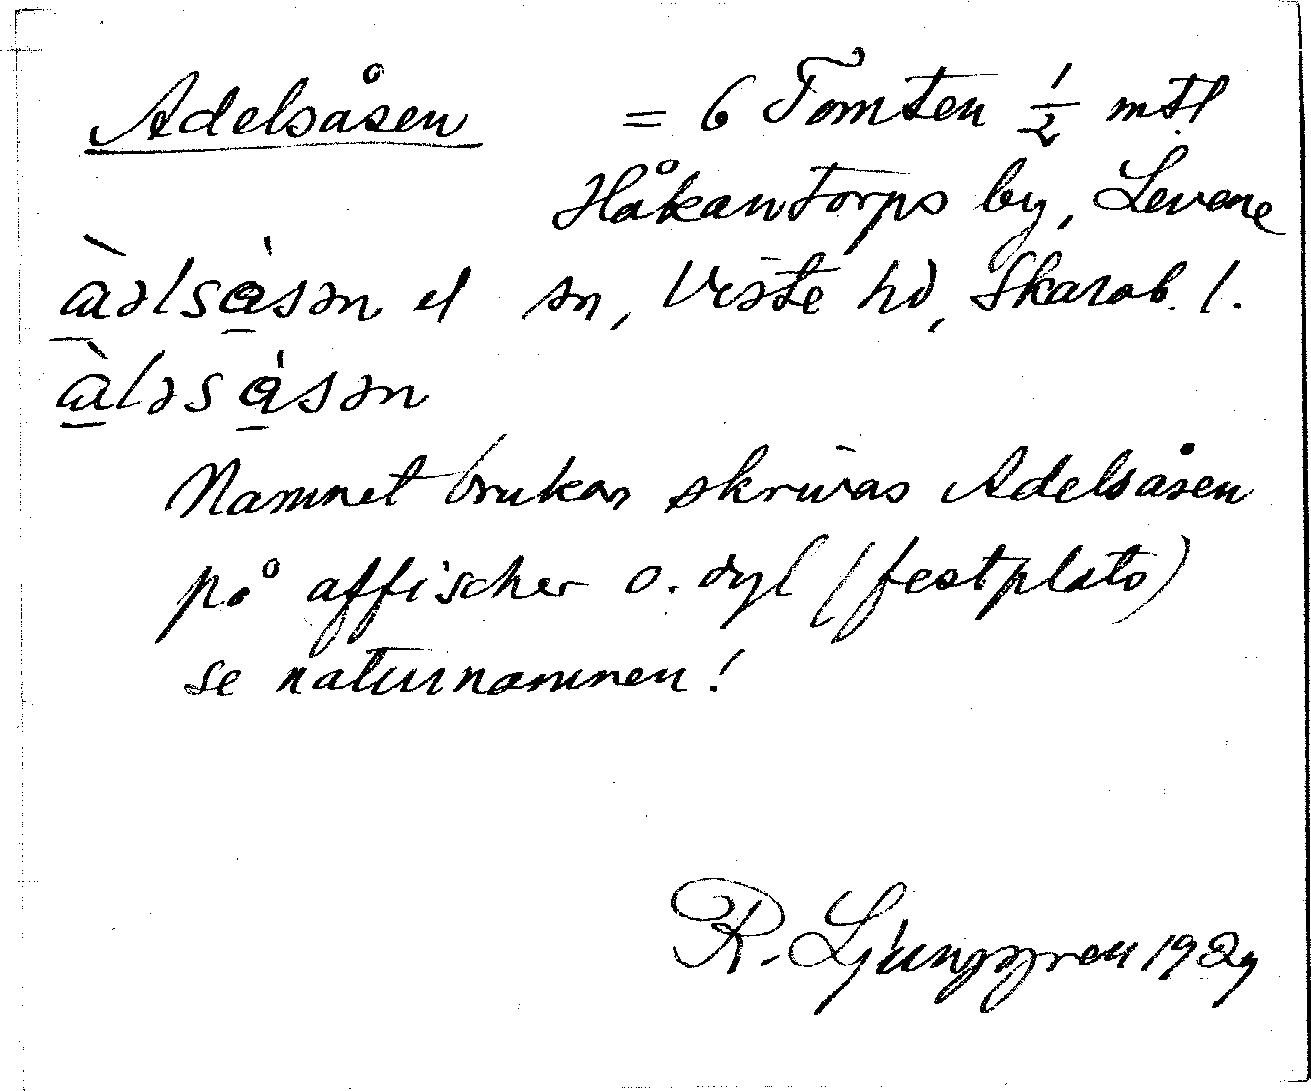 Adelsåsen = 6 Tomten 1/2 mtl
Håkantorps by, Levene
à̲əlså̲̀sən el sn, Viste hd, Skarab. l.
à̲ləså̲̀sən
Namnet brukar skrivas Adelsåsen
på affischer o. dyl (festplats)
se naturnamnen!
R. Ljunggren 1929